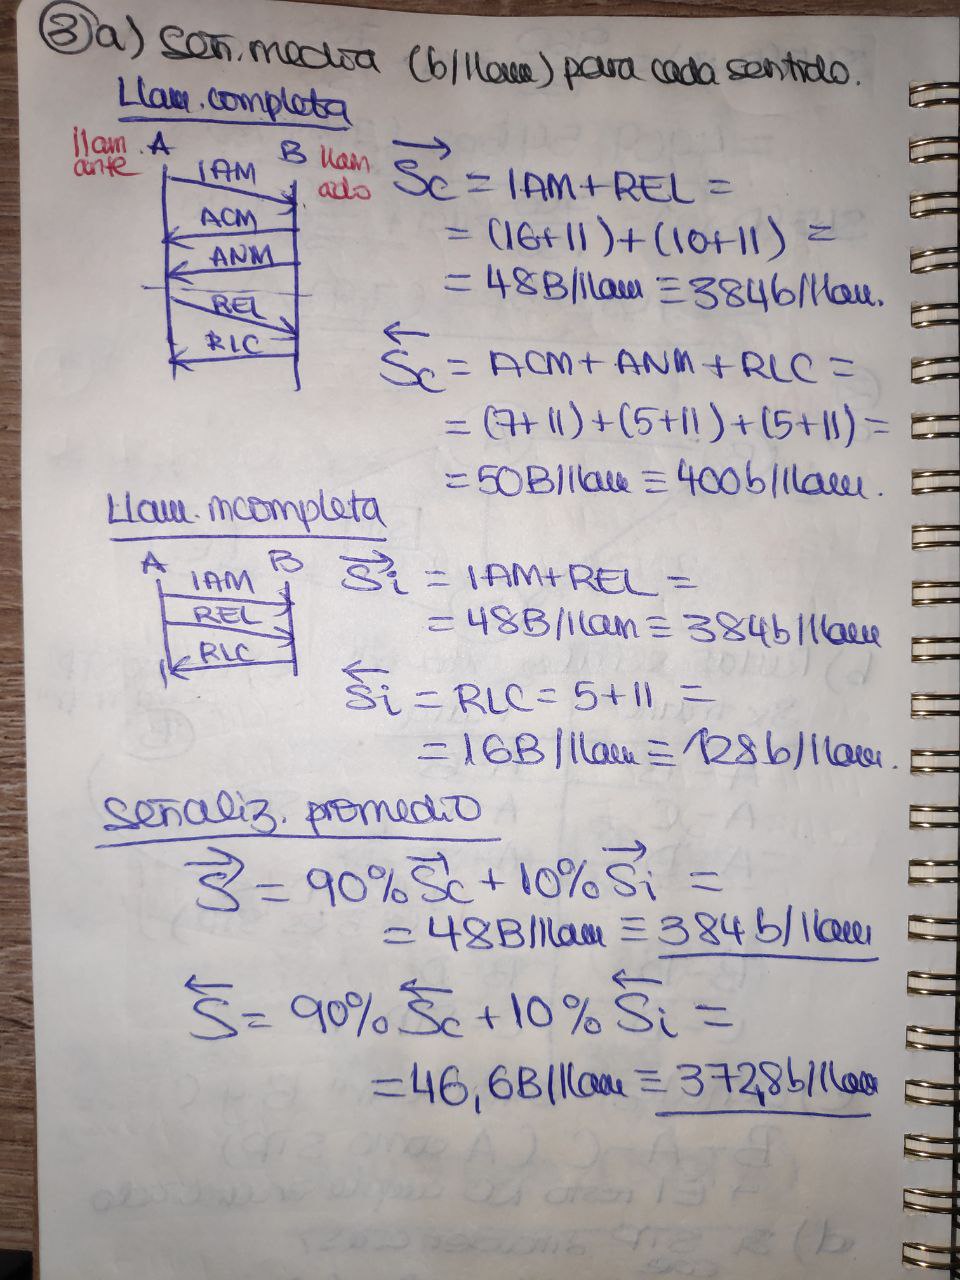 3) a) Señ. media (b/llam) para cada sentido.
Llam. completa
llamante A B llamado
IAM
ACM
ANM
REL
RLC
Sc = IAM + REL =
= (16+11) + (10+11) =
= 48B/llam ≡ 384b/llam.
Sc = ACM + ANM + RLC =
= (7+11) + (5+11) + (5+11) =
= 50B/llam ≡ 400b/llam.
Llam. incompleta
A B
IAM
REL
RLC
Si = IAM+REL =
= 48B/llam ≡ 384b/llam
Si = RLC = 5+11 =
= 16B/llam ≡ 128b/llam.
Señaliz. promedio
S = 90% Sc + 10% Si =
= 48B/llam ≡ 384b/llam
S = 90% Sc + 10% Si =
= 46,6B/llam ≡ 372,8b/llam